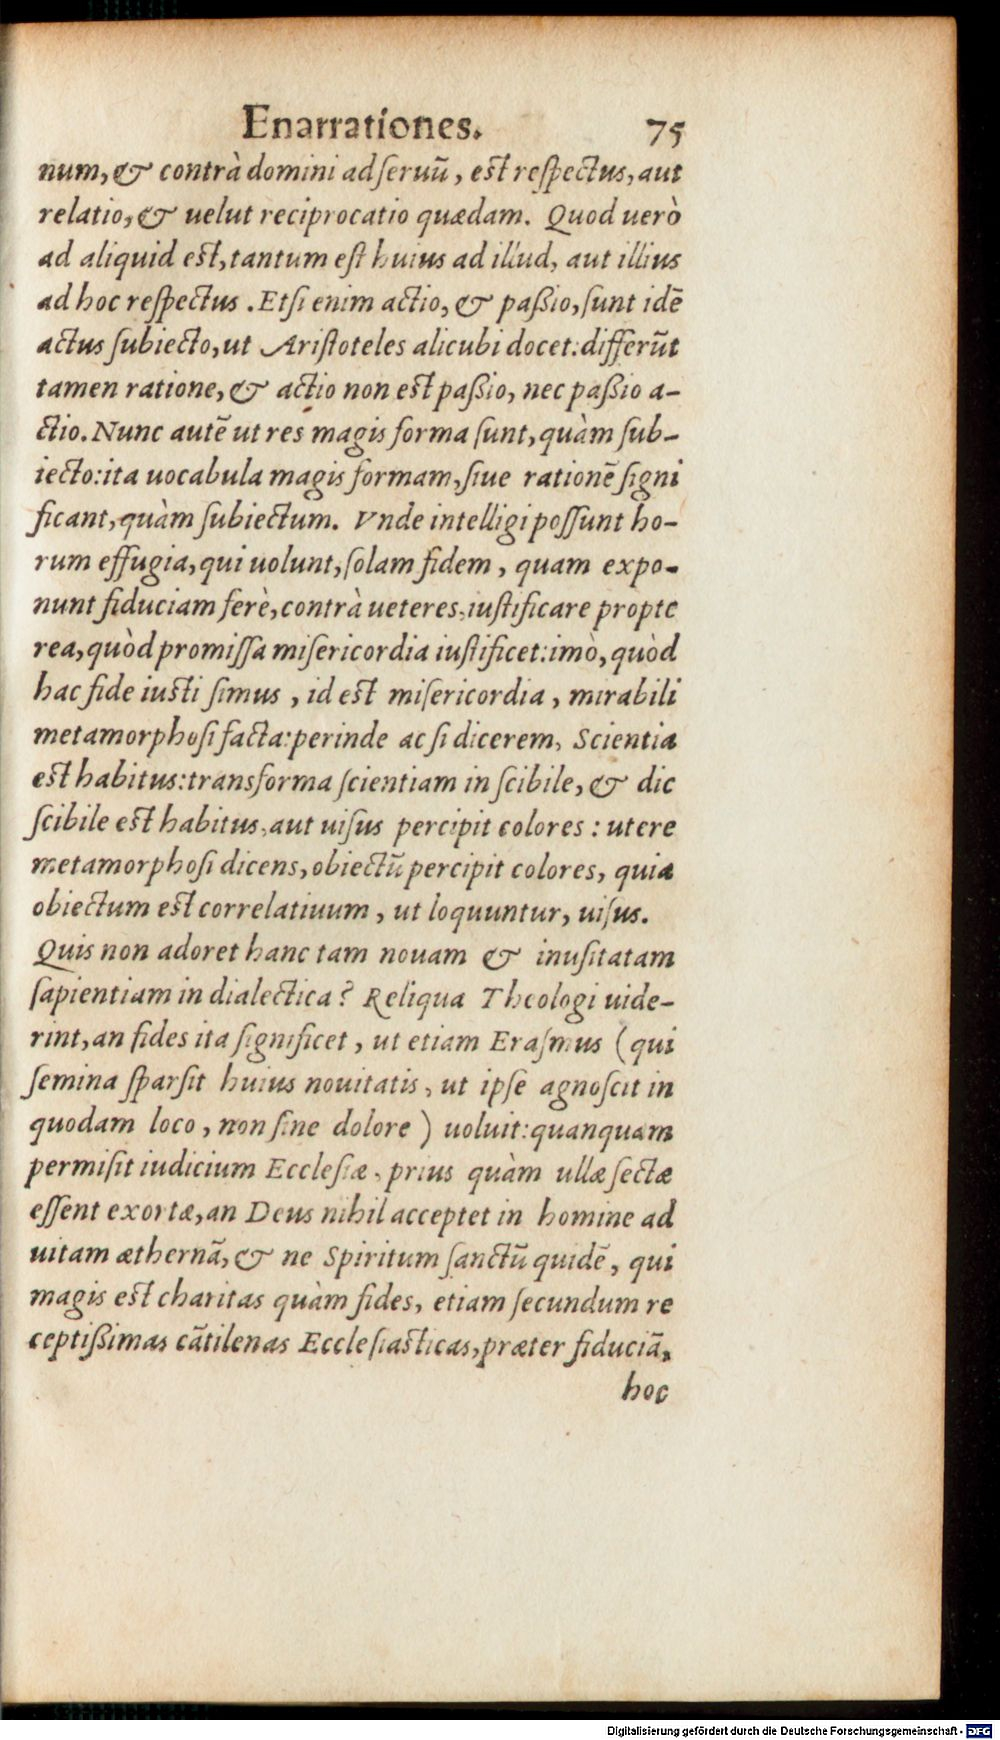 Enarrationes. 75
num, & contrà domini ad seruũ, est respectus, aut
relatio, & uelut reciprocatio quædam. Quod uerò
ad aliquid est, tantum est huius ad illud, aut illius
ad hoc respectus. Etsi enim actio, & paßio, sunt idẽ
actus subiecto, ut Aristoteles alicubi docet: differũt
tamen ratione, & actio non est paßio, nec paßio a-
ctio. Nunc autẽ ut res magis forma sunt, quàm sub-
iecto: ita uocabula magis formam, siue rationẽ signi
ficant, quàm subiectum. Vnde intelligi possunt ho-
rum effugia, qui uolunt, solam fidem, quam expo-
nunt fiduciam ferè, contrà ueteres, iustificare propte
rea, quòd promissa misericordia iustificet: imò, quòd
hac fide iusti simus, id est misericordia, mirabili
metamorphosi facta: perinde ac si dicerem, Scientia
est habitus: transforma scientiam in scibile, & dic
scibile est habitus, aut uisus percipit colores: utere
metamorphosi dicens, obiectũ percipit colores, quia
obiectum est correlatiuum, ut loquuntur, uisus.
Quis non adoret hanc tam nouam & inusitatam
sapientiam in dialectica? Reliqua Theologi uide-
rint, an fides ita significet, ut etiam Erasmus (qui
semina sparsit huius nouitatis, ut ipse agnoscit in
quodam loco, non sine dolore) uoluit: quanquam
permisit iudicium Ecclesiæ, prius quàm ullæ sectæ
essent exortæ, an Deus nihil acceptet in homine ad
uitam æthernã, & ne Spiritum sanctũ quidẽ, qui
magis est charitas quàm fides, etiam secundum re
ceptißimas cãtilenas Ecclesiasticas, præter fiduciã,
hoc
Digitalisierung gefördert durch die Deutsche Forschungsgemeinschaft - DFG